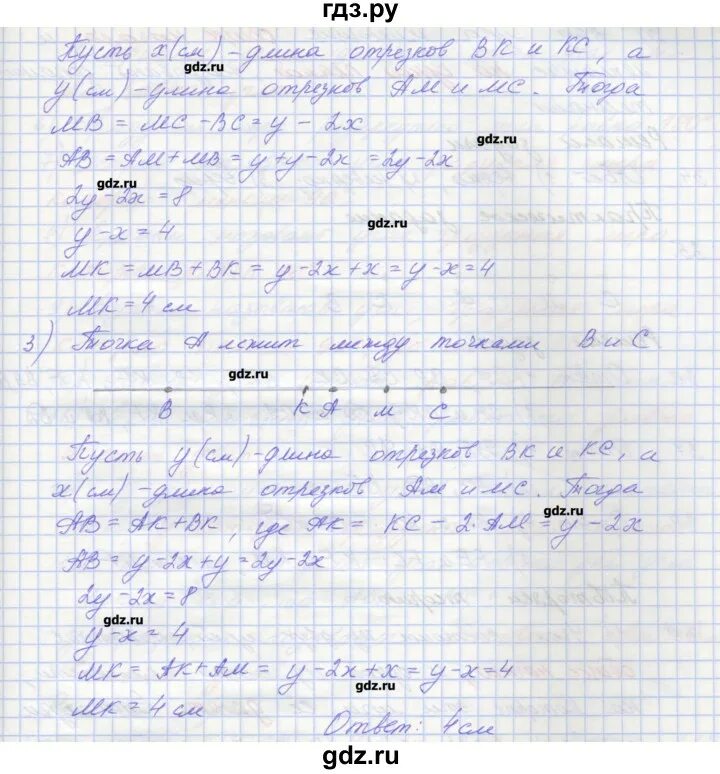 гдз.ру
Пусть x(см) - длина отрезков ВК и КС, а
gdz.ru
y(см) - длина отрезков АМ и МС. Тогда
МВ = МС - ВС = y - 2x
gdz.ru
АВ = АМ + МВ = y + y - 2x = 2y - 2x
gdz.ru
2y - 2x = 8
gdz.ru
y - x = 4
МК = МВ + ВК = y - 2x + x = y - x = 4
МК = 4 см
3) Точка А лежит между точками В и С
gdz.ru
В К А М С
Пусть y(см) - длина отрезков ВК и КС, а
gdz.ru
x(см) - длина отрезков АМ и МС. Тогда
АВ = АК + ВК, где АК = КС - 2·АМ = y - 2x
gdz.ru
АВ = y - 2x + y = 2y - 2x
2y - 2x = 8
gdz.ru
y - x = 4
МК = АК + АМ = y - 2x + x = y - x = 4
gdz.ru
МК = 4 см
Ответ: 4 см
gdz.ru